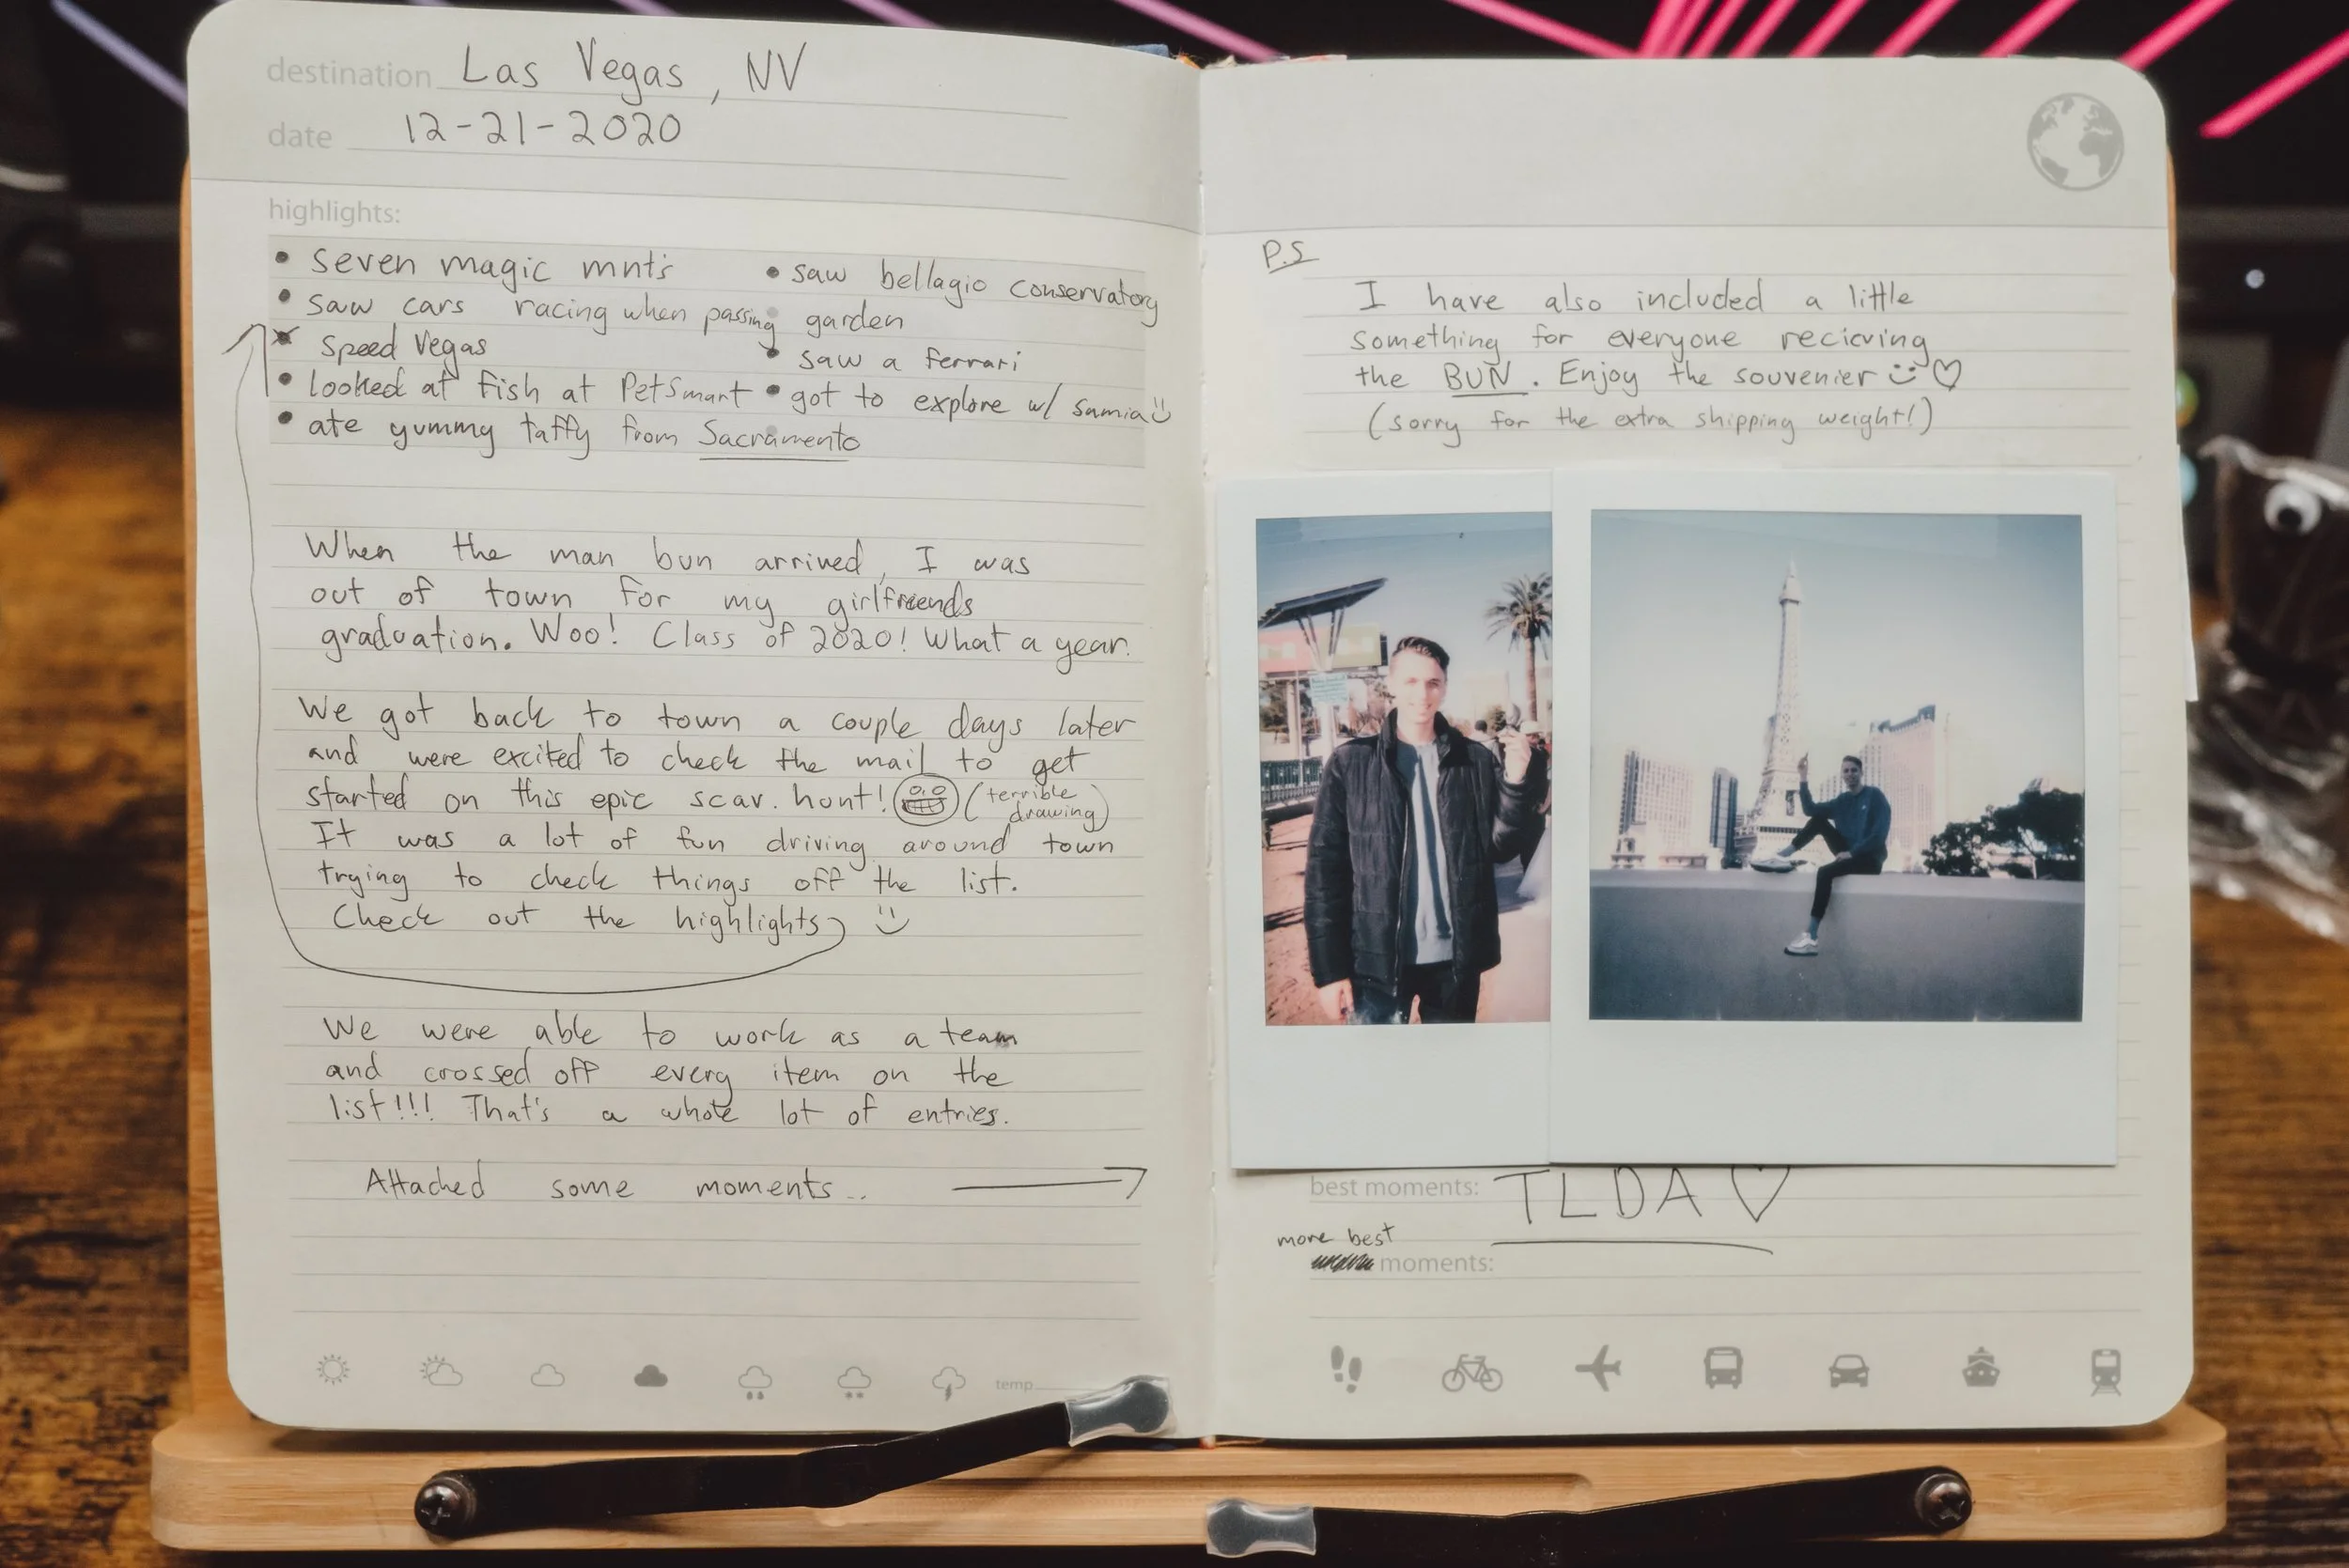 destination Las Vegas, NV
date 12-21-2020
highlights:
• seven magic mnt's
• saw cars racing when passing
speed Vegas
• looked at fish at PetSmart
• ate yummy taffy from Sacramento
• saw bellagio conservatory
garden
• saw a ferrari
• got to explore w/ samia
When the man bun arrived, I was
out of town for my girlfriends
graduation. Woo! Class of 2020! What a year.
We got back to town a couple days later
and were excited to check the mail to get
started on this epic scav. hunt! (terrible
drawing)
It was a lot of fun driving around town
trying to check things off the list.
Check out the highlights
We were able to work as a team
and crossed off every item on the
list!!! That's a whole lot of entries.
Attached some moments...
temp
P.S
I have also included a little
something for everyone recieving
the BUN. Enjoy the souvenier
(sorry for the extra shipping weight!)
best moments: TLDA
more best
moments: